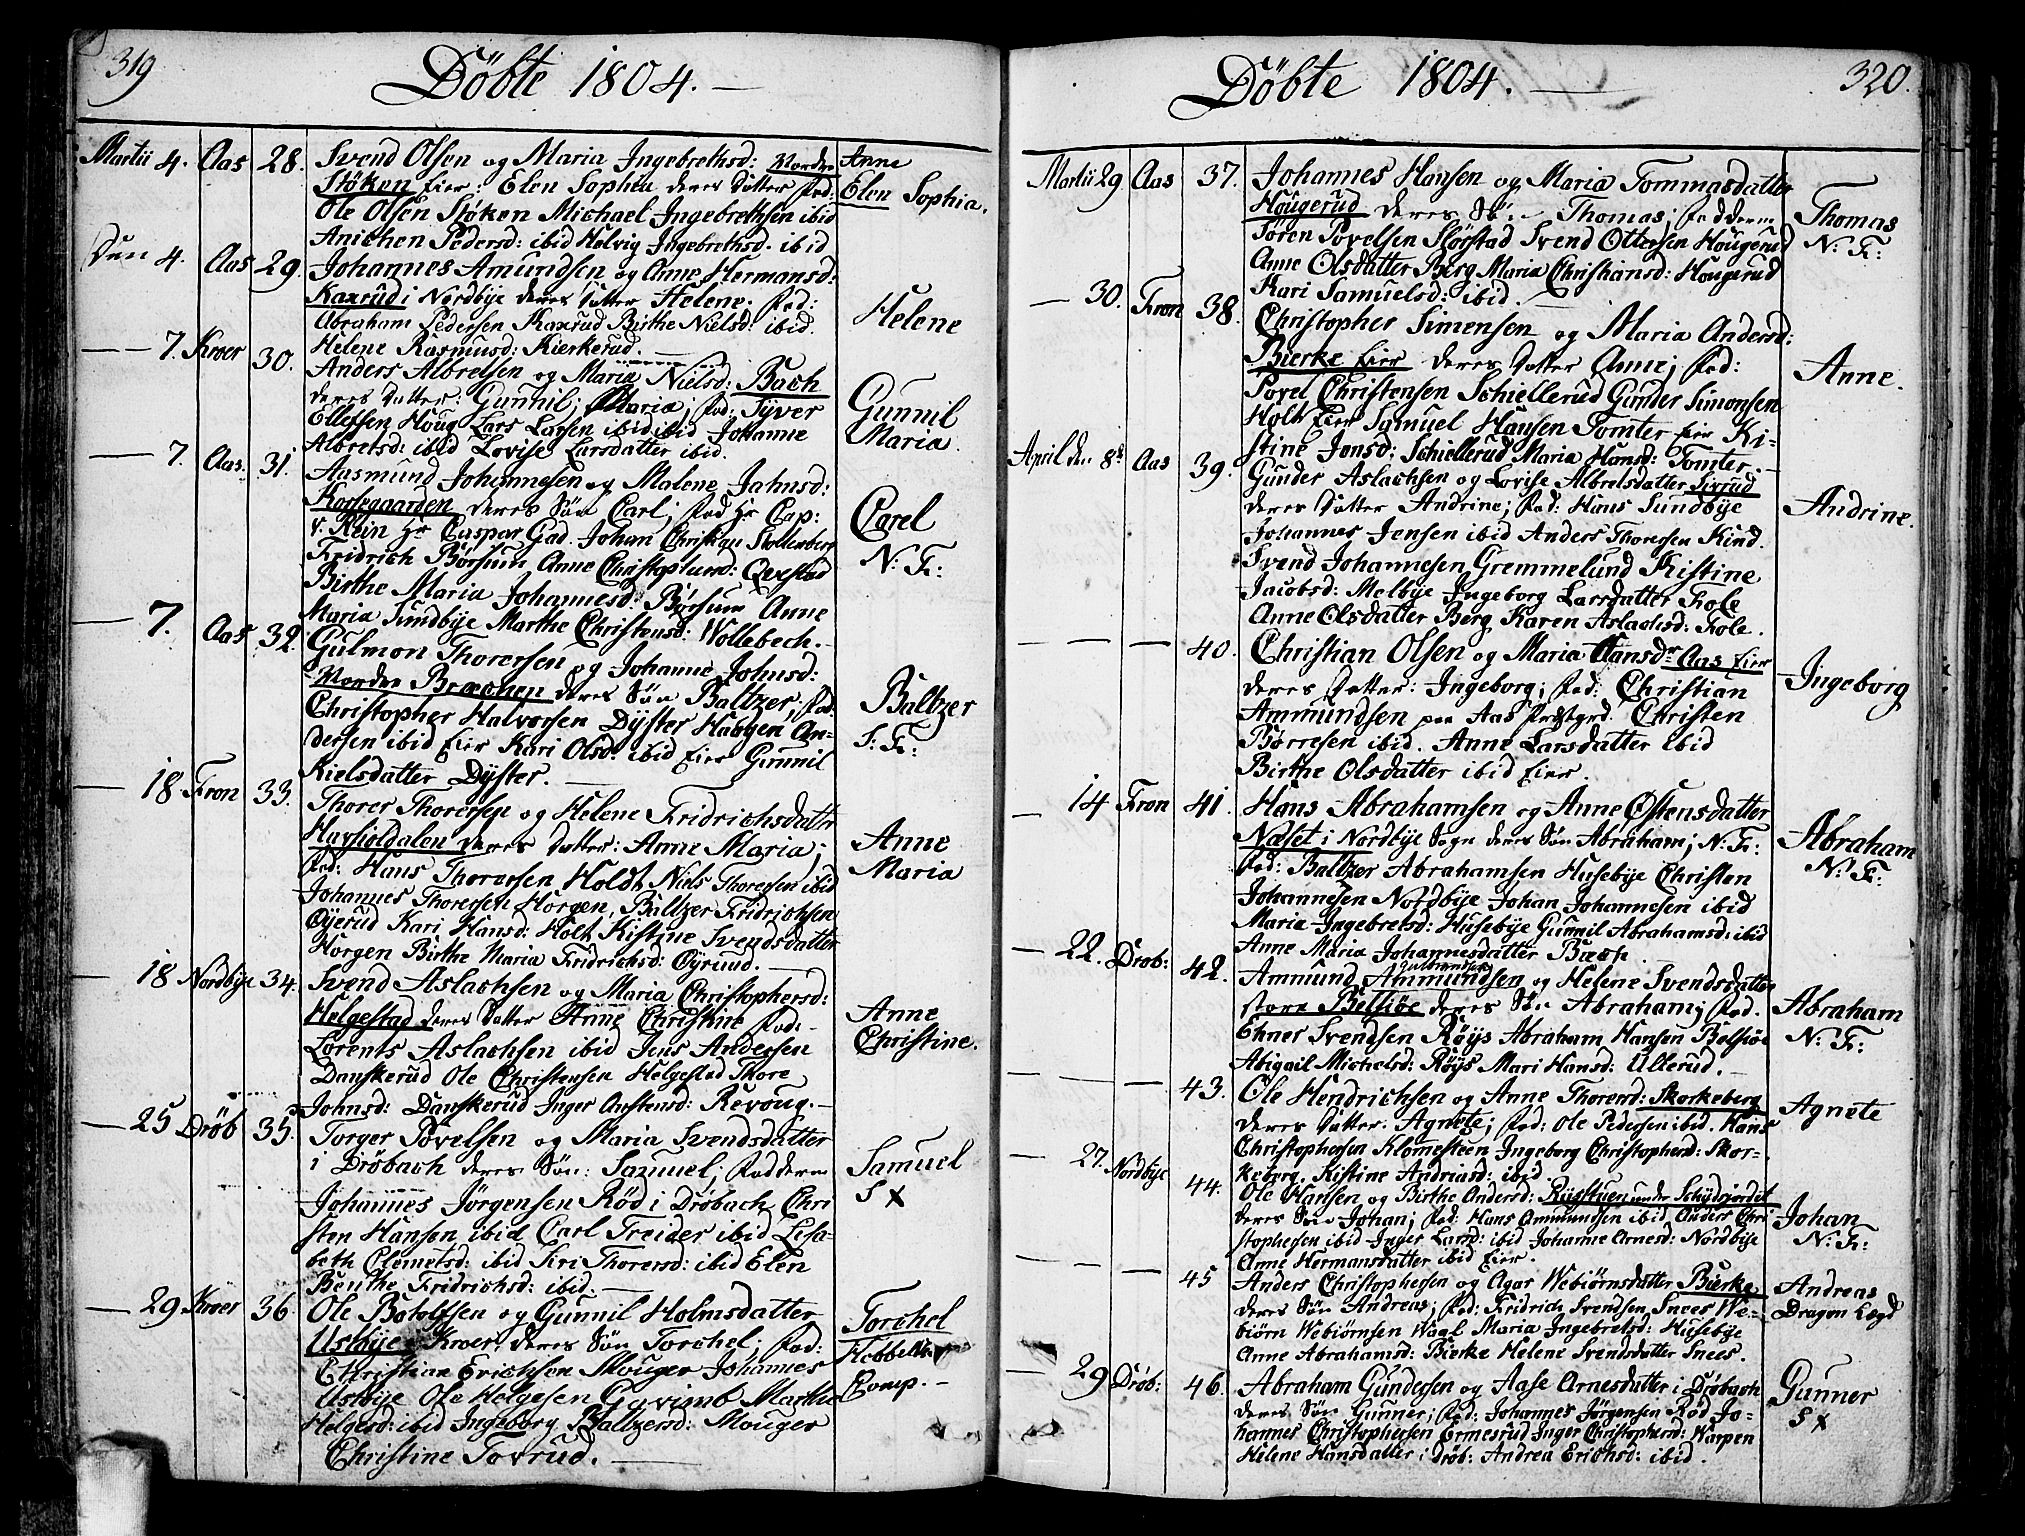 319
Döbte 1804.
Martii 4. Aas 28. Svend Olsen og Maria Ingebrethsd: Nordre Anne
Støken Eier: Elen Sophia deres Datter Fad: Elen Sophia.
Ole Olsen Støken Michael Ingebrethsen ibid
Anichen Pedersd: ibid Helvig Ingebrethsd. ibid
Dun 4. Aas 29. Johannes Amundsen og Anne Hermansd:
Kaxrud i Nordbye deres Datter Helene. Fad: Helene
Abraham Pedersen Kaxrud Birthe Nielsd: ibid.
Helene Rasmusd: Kierkerud.
7. Kroer 30. Anders Albretsen og Maria Nielsd: Bach
deres Datter: Gunnil Maria; Fad: Syver Gunnil
Ellefsen Houg Lars Larsen ibid ibid Johanne Maria.
Albretsd: ibid Lovise Larsdatter ibid.
7. Aas. 31. Aasmund Johannesen og Malene Jahnsd:
Korsegaarden deres Søn Carl; Fad Hr Cap: Carel
v: Rein Hr Caspar Gad. Johan Christian Stollenberg
Fridrich Børsum Anne Christophersd: Qvestad N: F:
Birthe Maria Johannesd: Børsum Anne
Maria Sundbye Marthe Christensd: Wollebech.
7. Aas 32. Gulmon Thorersen og Johanne Johnsd:
Nordre Brechen deres Søn Baltzer; Fad: Baltzer
Christopher Halvorsen Dyster Haagen An-
dersen ibid Eier Kari Olsd: ibid Eier Gunnil S: F:
Kielsdatter Dyster.
18 Fron 33. Thorer Thorersen og Helene Fridrichsdatter
Haxholdalen deres Datter: Anne Maria; Anne
Fad: Hans Thorersen Holdt Niels Thorersen ibid Maria
Johannes Thorersen Horgen, Baltzer Fridrichsen
Øyerud Kari Hansd: Holt Kistine Svendsdatter
Horgen Birthe Maria Fridrichsd: Øyruud.
18 Nordbye 34. Svend Aslachsen og Maria Christophersd:
Helgestad deres Datter Anne Christine Fad: Anne
Lorents Aslachsen ibid Jens Andersen Christine.
Danskerud Ole Christensen Helgestad Thore
Johnsd: Danskerud Inger Anstensd: Revoug.
25 Drøb 35. Torger Povelsen og Maria Svendsdatter
i Drøbach deres Søn: Samuel; Fadderne Samuel
Johannes Jørgensen Rød i Drøbach Chri S X
sten Hansen ibid Carl Treider ibid Lisa-
beth Clemetsd: ibid Siri Thorersd: ibid Elen
Benthe Fridrichsd: ibid.
29 Kroer 36. Ole Botolfsen og Gunnil Holmsdatter Torchel
Ustbye i Kroer, deres Søn Torchel; Fad:
Christian Erichsen Mouger Johannes
Ustbye Ole Helgesen Marthe Comp.
Helgesd: ibid Ingeborg Baltzersd: Mouger
Christine Tovrud.
320.
Döbte 1804.
Martii 29 Aas 37. Johannes Hansen og Maria Tommasdatter
Hougerud deres Søn Thomas; Fadderne Thomas
Søren Povelsen Storstad Svend Ottersen Hougerud N: F:
Anne Olsdatter Berg Maria Christiansd: Hougerud
Kari Samuelsd: ibid.
30. Fron 38. Christopher Simensen og Maria Andersd:
Bierke Eier deres Datter Anne; Fad: Anne.
Povel Christensen Schiellerud Gunder Simonsen
Holt Eier Samuel Hansen Tomter Eier Ki-
stine Jonsd: Schiellerud Maria Hansd: Tomter.
April den 8de Aas 39. Gunder Aslachsen og Lovise Albretsdatter Sivrud
deres Datter Andrine; Fad: Hans Sundbye Andrine.
Johannes Jensen ibid Anders Thoresen Kind.
Svend Johannesen Gremmelund Kistine
Jacobsd: Melbye Ingeborg Larsdatter Fole
Anne Olsdatter Berg Karen Aslachsd: Fole.
40. Christian Olsen og Maria Hansdr Aas Eier
deres Datter: Ingeborg; Fad: Christian Ingeborg
Ammundsen paa Aas Præstgrd. Christen
Børresen ibid. Anne Larsdatter ibid
Birthe Olsdatter ibid Eier.
14 Fron 41. Hans Abrahamsen og Anne Østensdatter
Næset i Nordbye Sogn deres Søn Abraham; N: F: Abraham
Fad: Baltzer Abrahamsen Husebye Christen N: F:
Johannesen Nordbye Johan Johannesen ibid
Maria Ingebretsd: Husebye Gunnil Abrahamsd: ibid
Anne Maria Johannesdatter Bæch.
22. Drøb: 42. Ammund Ammundsen og Helene Svendsdatter
store Bilsiøe deres Søn Abraham; Fad. Abraham
Ehner Svendsen Røys Abraham Hansen Bølsiøe N: F:
Abigail Michelsd: Røys Mari Hansd: Ullerud.
43. Ole Hendrichsen og Anne Thorerd: Skorkeberg
deres Datter: Agnete; Fad: Ole Pedersen ibid. Hans Agnete
Christophersen Klomesteen Ingeborg Christophersd: Skor-
keberg, Kistine Andriasd: ibid.
27. Nordbye 44. Ole Hansen og Birthe Andersd: Riisstuen under Schydsjordet
deres Søn Johan; Fad: Hans Ammundsen ibid Anders Chri Johan
stophersen ibid Inger Larsd: ibid Johanne Arnesd: Nordbye N: F:
Anne Hermansdatter ibid Eier.
45 Anders Christophersen og Agar Webiørnsdatter Bierke Andreas
deres Søn Andreas; Fad: Fridrich Svendsen Snees We- Dragon Lægd
biørn Webiørnsen Wagl Maria Ingebretsd: Husebye
Anne Abrahamsd: Bierke Helene Svendsdatter Snees.
29 Drøb: 46. Abraham Gundersen og Aase Arnesdatter i Drøbach Gunner
deres Søn Gunner; Fad: Johannes Jørgensen Rød Jo- S X
hannes Christophersen Ermesrud Inger Christophersd: Warpen
Helene Hansdatter i Drøb: Andrea Erichsd: ibid.